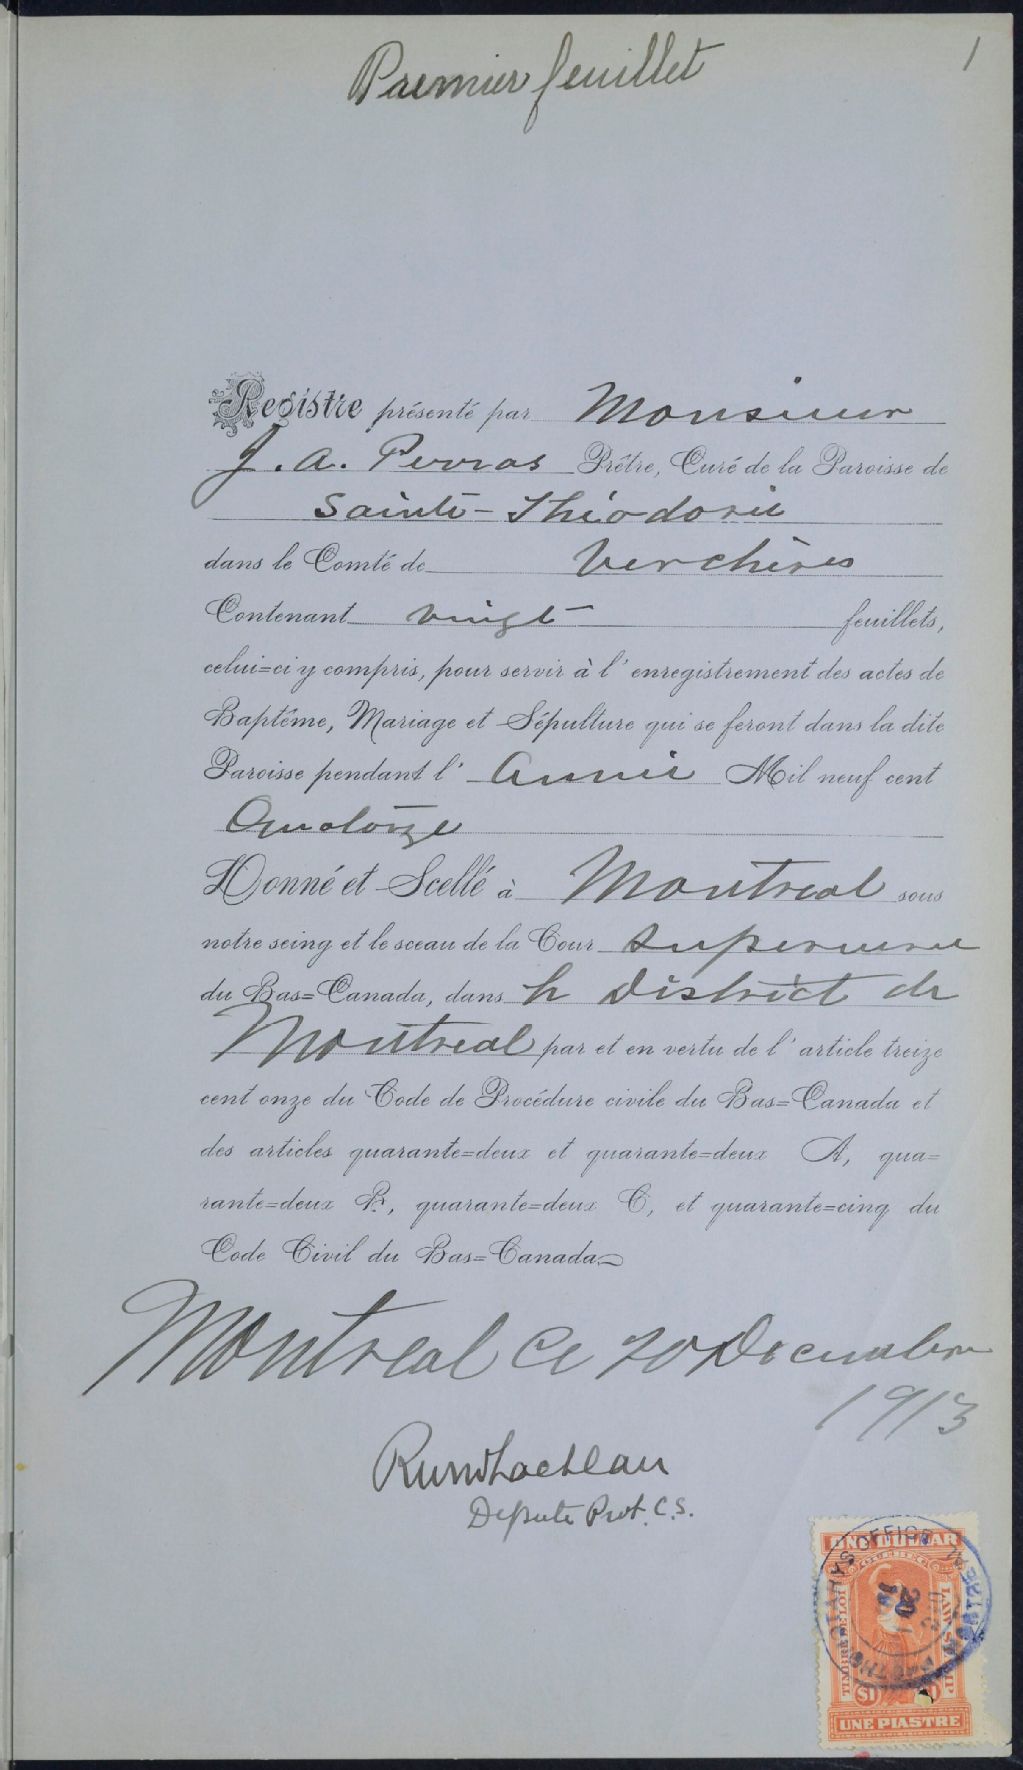 Premier feuillet
1
Registre présenté par Monsieur
J. A. Perras Prêtre, Curé de la Paroisse de
Sainte-Théodosie
dans le Comté de Verchères
Contenant vingt feuillets,
celui=ci y compris, pour servir à l'enregistrement des actes de
Baptême, Mariage et Sépulture qui se feront dans la dite
Paroisse pendant l'Année Mil neuf cent
Quatorze
Donné et Scellé à Montreal sous
notre seing et le sceau de la Cour Superieure
du Bas=Canada, dans le District de
Montreal par et en vertu de l'article treize
cent onze du Code de Procédure civile du Bas=Canada et
des articles quarante=deux et quarante=deux A, qua=
rante=deux B, quarante=deux C, et quarante=cinq du
Code Civil du Bas=Canada
Montreal ce 20 Decembre
1913
Depute Prot. C.S.
ONE DOLLAR
QUEBEC
TIMBRE DE LOI
LAW STAMP
$1
UNE PIASTRE